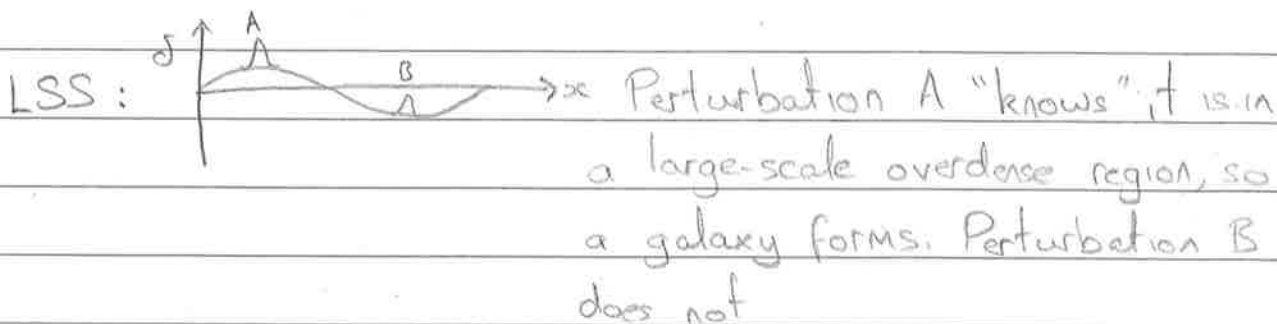 A
δ
B
LSS: x Perturbation A "knows" it is in
a large-scale overdense region, so
a galaxy forms. Perturbation B
does not